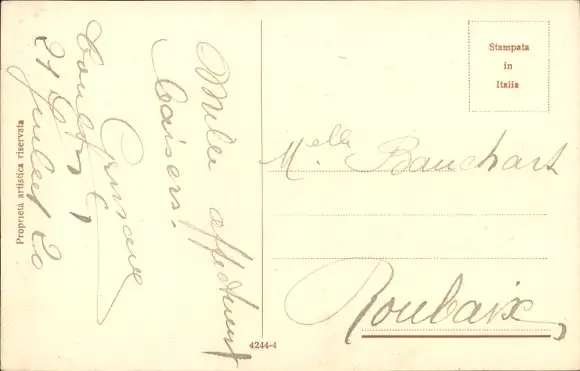 Mille affectueux
baisers.
Toulon
21 Juillet 20
Proprietà artistica riservata
4244-4
Stampata
in
Italia
Melle Bauchart
Roubaix